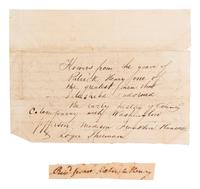 Flowers from the grave of
Patrick Henry, one of
the greatest men that
adorned
the early history of our
Cotemporary with Washington
Jefferson Madison Franklin Hancock
Roger Sherman
from Patrick Henry